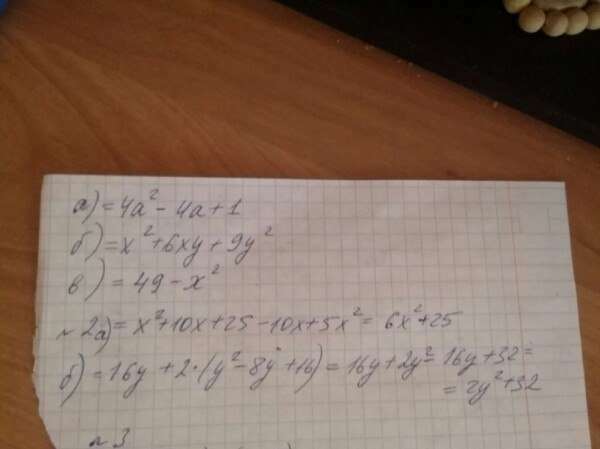 а) = 4a² - 4a + 1
б) = x² + 6xy + 9y²
в) = 49 - x²
№ 2а) = x² + 10x + 25 - 10x + 5x² = 6x² + 25
б) = 16y + 2·(y² - 8y + 16) = 16y + 2y² - 16y + 32 =
= 2y² + 32
№ 3